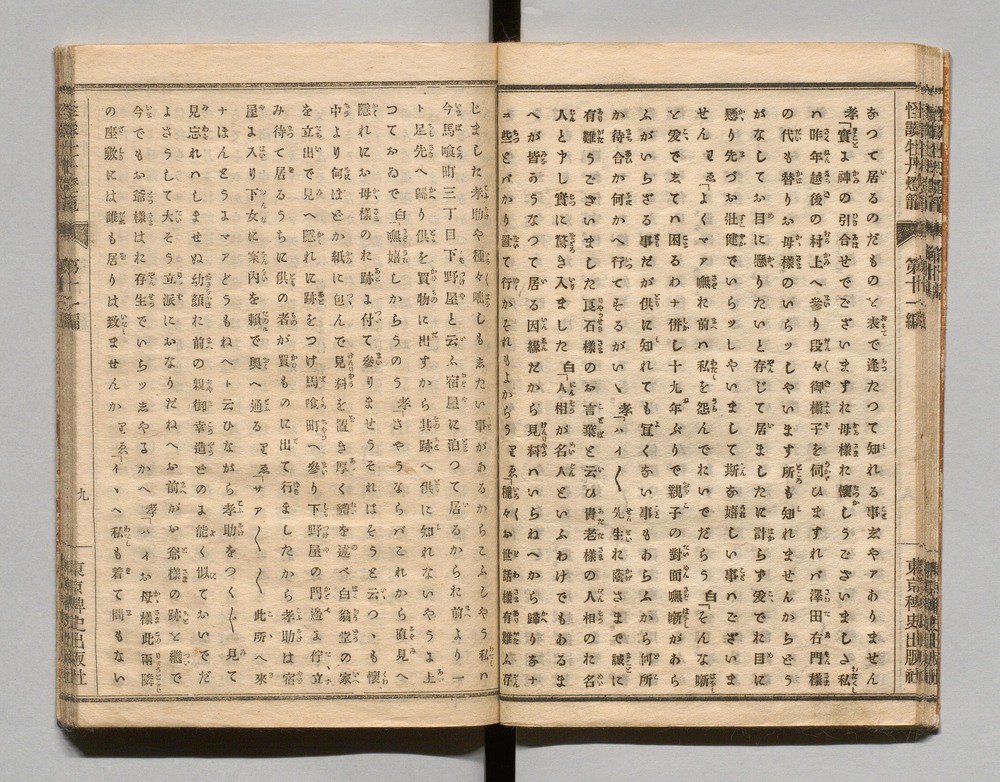 怪談牡丹燈籠
第十一編
東京稗史出版社
おつて居るのだものと表で逢たつて知れる事ぢやアありません
孝「實よ神の引合せでございますお母様お懷しうございましさ私
ハ昨年越後の村上へ參り段々御樣子を伺ひますれバ澤田右門樣
の代も替りお母樣のいらッしやいます所も知れませんからどう
がなしてお目に懸りたいと存じて居ましたに計らず爰でお目に
懸り先づお壯健でいらッしやいまして斯な嬉しい事ハございま
せん ゑ「よくマア嘸お前ハ私を怨んでおいでだらう 白「そんな噺
を爰でゑてハ困るわナ併し十九年ぶりで親子の對面嘸噺があら
ふがいらざる事だが供に知れても宜くない事もあらふから何所
か待合か何かへ行つてするがいゝ 孝「ハイ〱 先生お蔭さまで誠に
有難うございました良石樣のお言葉と云ひ貴老樣の人相のお名
人と申し實に驚き入ました 白「人相が名人といふわけでもあるま
へが皆さうなつて居る因緣だから見料ハいらねへから歸りなナ
ニ些とバかり置て行かそれもよからう りゑ「種々お世話樣有難ふ存
じました孝助や種々噺しもゑたい事があるからこふしやう私ハ
今馬喰町三丁目下野屋と云ふ宿屋に泊つて居るからお前より一
ト足先へ歸り供を買物に出すから其跡へ供に知れないやうよ上
つておゐで 白「嘸嬉しからうのう 孝「さやうならバこれから直見へ
隱れにお母樣のお跡よ付て參りませうそれはそうと云つゝも懷
中より何ほどか紙に包んで見料を置き厚く禮を述べ白翁堂の家
を立出で見へ隱れに跡をつけ馬喰町へ參り下野屋の門邊よ佇立
み待て居るうちに供の者が買ものに出て行ましたから孝助は宿
屋よ入り下女に案内を賴で奧へ通る りゑ「サア〱〱 此所へ來
ナほんとうよマアどうもねヘト云ひながら孝助をつく〲見て
見忘れハしませぬ幼顏お前の親御幸造どのよ能く似ておいでだ
よさうして大そう立派におなりだねへお前がお爺樣の跡と繼で
今でもお爺樣はお存生でいらッゑやるかへ 孝「ハイお母樣此兩隣
の座敷には誰も居りは致ませんか りゑ「イヽへ私も着て間もない
九
怪談牡丹燈籠
第十一編
東京稗史出版社